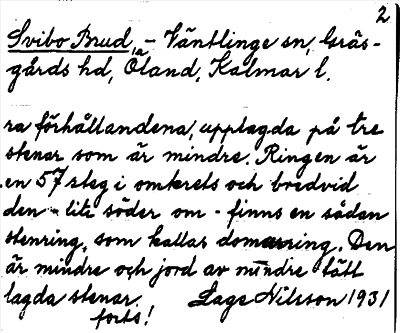 2
Svibo Brud, a - Väntlinge sn, Gräs-
gårds hd, Öland, Kalmar l.
ra förhållandena, upplagda på tre
stenar som är mindre. Ringen är
en 57 steg i omkrets och bredvid
den - lite söder om - finns en sådan
stenring, som kallas domarring. Den
är mindre och jord av mindre tätt
lagda stenar. Lage Nilsson 1931
forts!